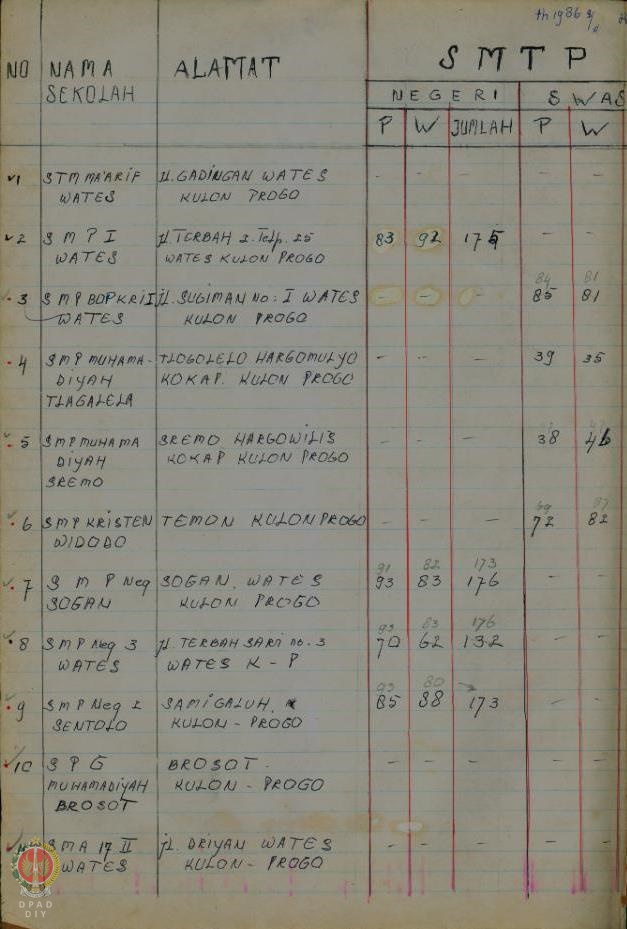 th 1986 s/d
S M T P
NO NAMA SEKOLAH ALAMAT
NEGERI SWAS
P W JUMLAH P W
1 STM MA'ARIF Jl. GADINGAN WATES - - - - -
WATES KULON PROGO
2 S M P I Jl. TERBAH 2. Telp. 25 83 92 175 - -
WATES WATES KULON PROGO
84 81
3 SMP BOPKRI I Jl. SUGIMAN No: I WATES - - - 85 81
WATES KULON PROGO
4 SMP MUHAMA- TLOGOLELO HARGOMULYO - - - 39 35
DIYAH KOKAP. KULON PROGO
TLAGALELA
5 SMP MUHAMA SREMO HARGOWILIS - - - 38 46
DIYAH KOKAP KULON PROGO
SREMO
6 SMP KRISTEN TEMON KULON PROGO - - - 72 82
WIDODO
91 82 173
7 S M P Neg SOGAN, WATES 93 83 176 - -
SOGAN KULON PROGO
93 83 176
8 SMP Neg 3 Jl. TERBAH SARI no. 3 70 62 132 - -
WATES WATES K - P
93 80
9 SMP Neg I SAMIGALUH, 85 88 173 - -
SENTOLO KULON - PROGO
10 S P G BROSOT. - - - - -
MUHAMADIYAH KULON - PROGO
BROSOT
SMA 17 II jl. DRIYAN WATES - - - - -
WATES KULON - PROGO
DPAD
DIY